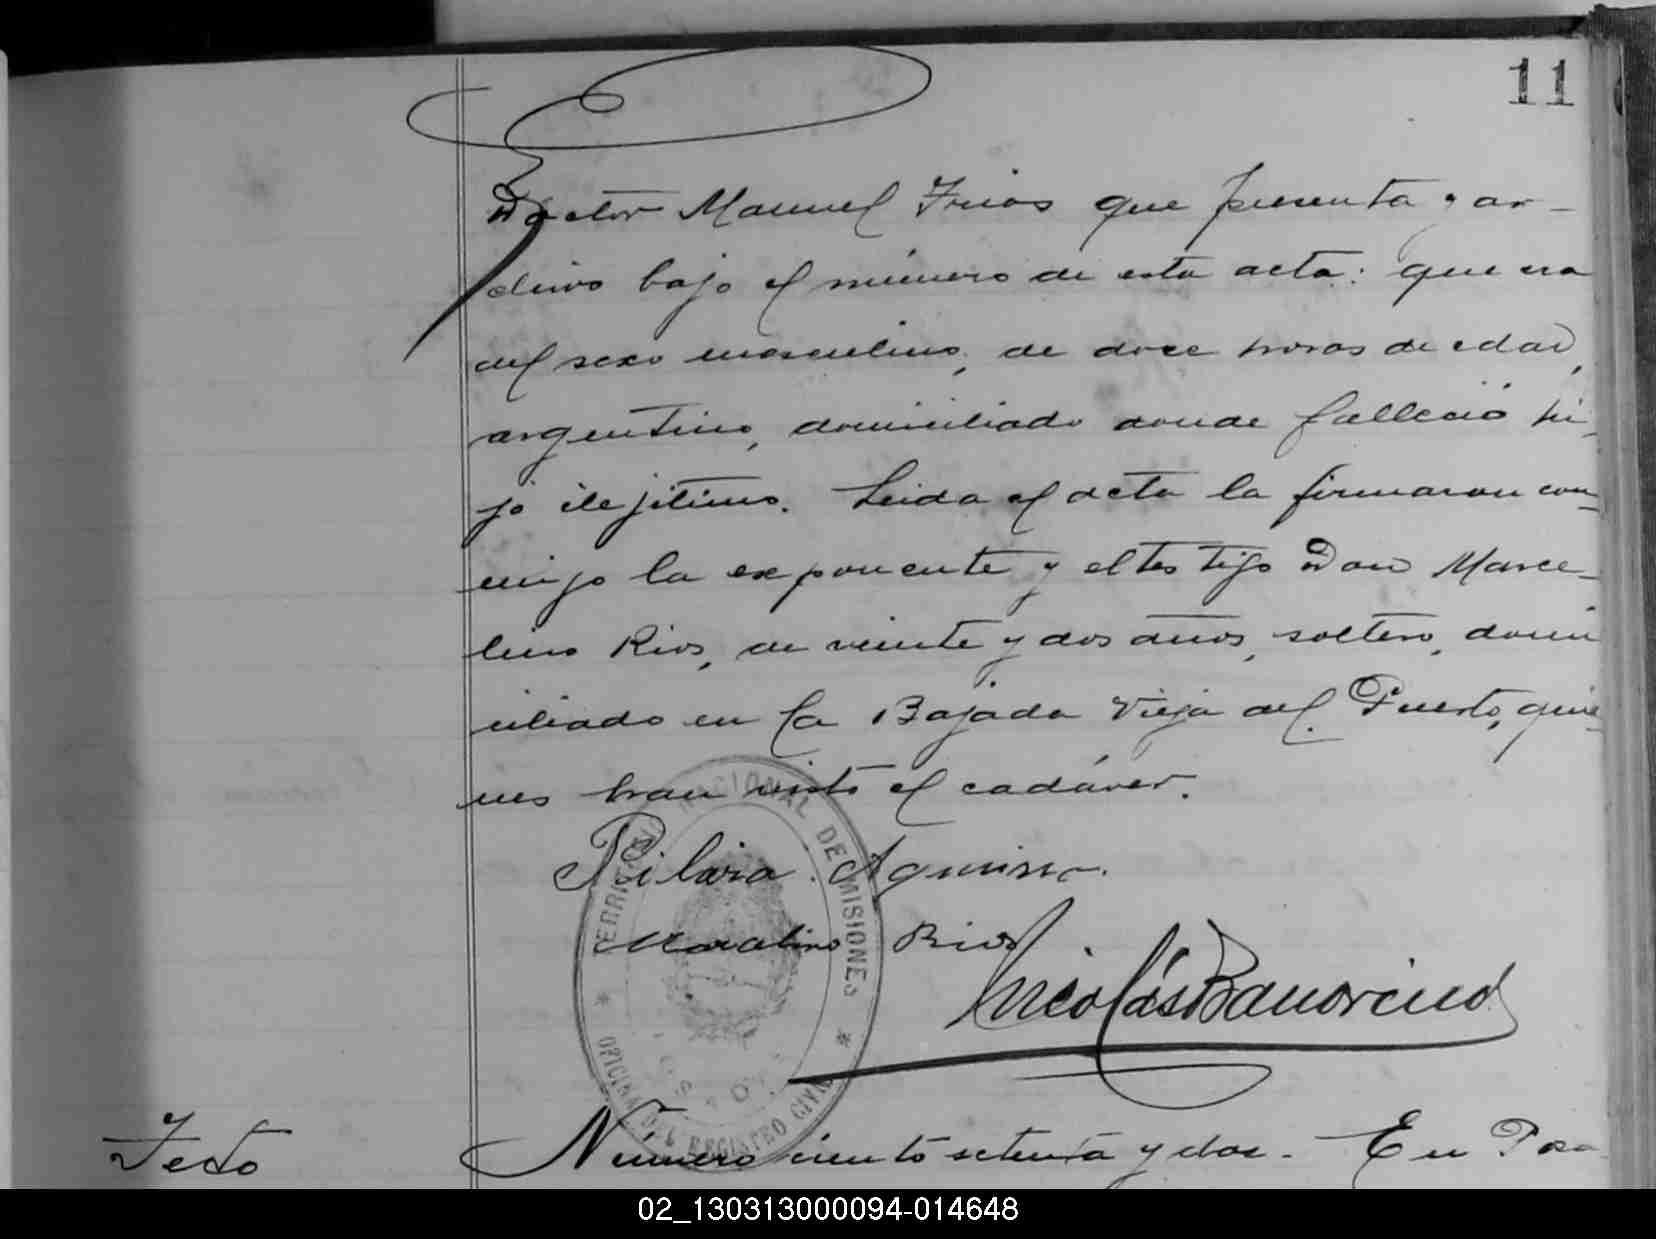 11
Doctor Manuel Frias que presenta y ar-
chivo bajo el número de esta acta: que era
del sexo masculino, de doce horas de edad,
argentino, domiciliado donde falleció hi-
jo ilejitimo. Leida el acta la firmaron con-
migo la exponente y el testigo Don Marce-
lino Rios, de veinte y dos años, soltero, domi
ciliado en la Bajada Vieja del Puerto, quie-
nes han visto el cadáver.
Pilara Aguirre
Marcelino Rios
Nicolás
TERRITORIO NACIONAL DE MISIONES
OFICINA DEL REGISTRO CIVIL
Feto
Número ciento setenta y dos. - En Posa
02_130313000094-014648